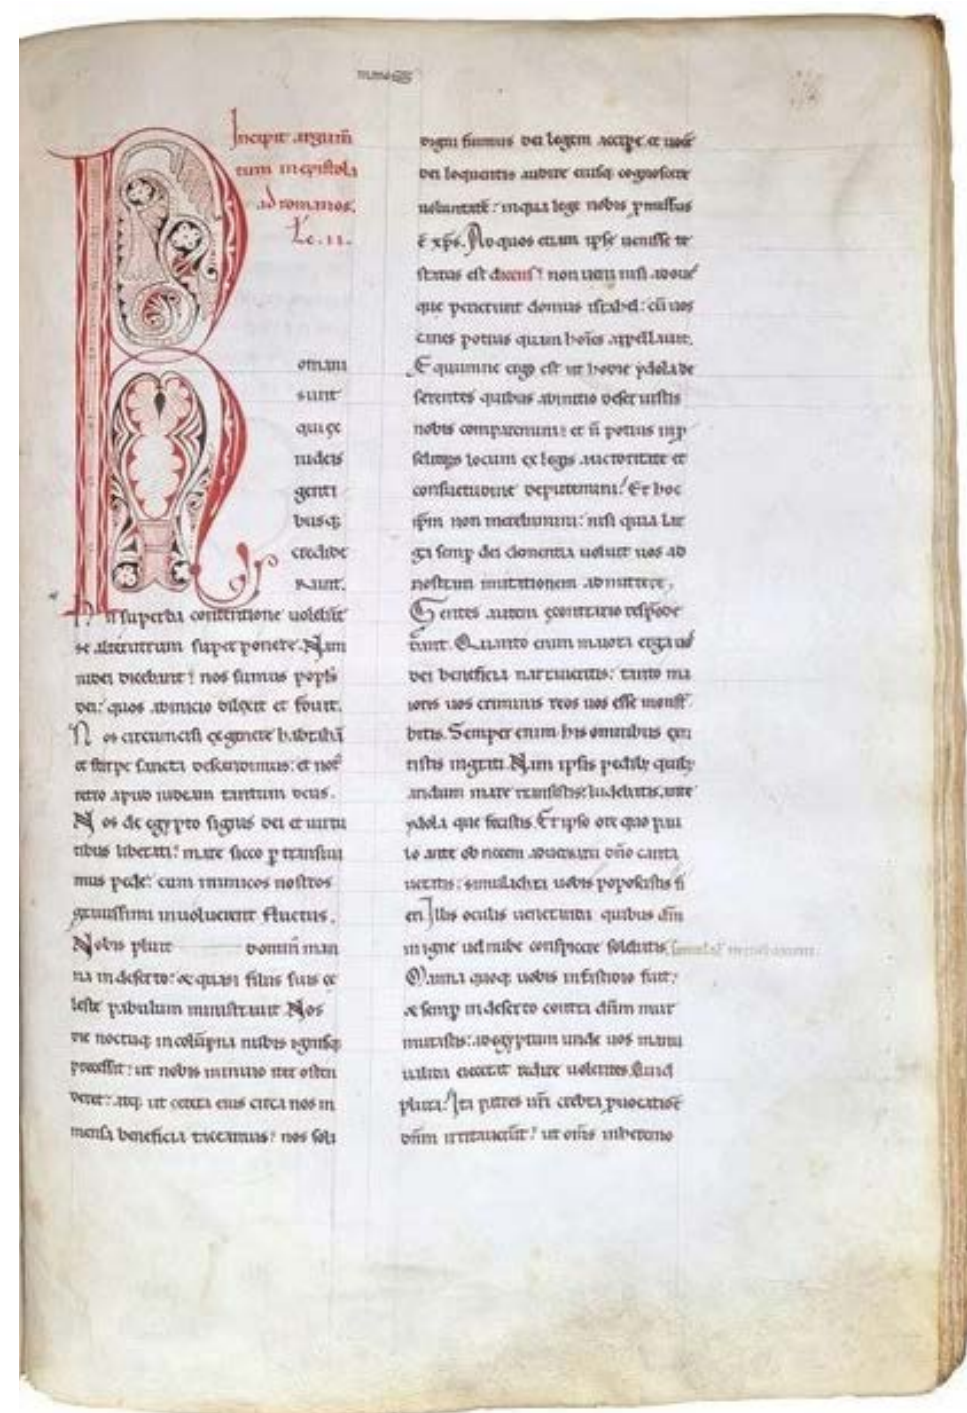 Incipit argum̄
tum in epistola
ad romanos.
Lc. ii.
omani
sunt
qui ex
iudeis
genti
busq;
credide
runt.
Hii superba contentione uolebāt
se alterutrum superponere. Nam
iudei dicebant: nos sumus popłs
dei: quos ab inicio dilexit et fouit.
Nos circumcisi ex genere habrahā
et stirpe sancta descendimus: et not᷒
retro apud iudeam tantum deus.
Nos de egypto signis dei et uirtu
tibus liberati: mare sicco p transiui
mus pede: cum inimicos nostros
grauissimi inuoluerent fluctus.
Nobis pluit domin̄ man
na in deserto: et quasi filiis suis ce
leste pabulum ministrauit. Nos
die noctuq; in colūpna nubis ignisq;
precessit: ut nobis in inuio iter osten
deret: atq; ut cetera eius circa nos in
mensa beneficia taceamus: nos soli
digni fuimus dei legem accipe et uocē
dei loquentis audire eiusq; cognoscere
uoluntatē: in qua lege nobis pmissus
ē xp̄s. Ad quos etiam ipse uenisse te
status est dicens: non ueni nisi ad oues
que perierunt domus isrł: cū uos
canes potius quam hoīes appellauit.
Equumne ergo est ut hodie ydola de
serentes quibus ab initio deseruistis
nobis comparemini: et ñ potius in p
selitorum locum ex legis auctoritate et
consuetudine deputemini? Et hoc
ip̄m non merebimini: nisi quia lar
ga semp dei clementia uoluit uos ad
nostram imitationem admittere.
Gentes autem econtrario respōde
bant. Quanto enim maiora erga uos
dei beneficia narraueritis: tanto ma
ioris uos criminis reos uos esse monstr
bitis. Semper enim his omnibus exti
tistis ingrati. Nam ipsis pedib; quib;
aridum mare transistis: ludebatis ante
ydola que fecistis. Et ipso ore quo pau
lo ante ob necem aduersarii dño canta
ueritis: simulachra uobis poposcistis fi
eri. Illis oculis uenerandā quibus dm̄
in igne uel nube conspicere solebatis
Manna quoq; uobis in fastidio fuit:
et semp in deserto contra dñm mur
murastis: ad egyptum unde uos manu
ualida eiecerat redire uolentes. Quid
plura? Ita patres uri crebra puocatiōe
dñm irritauerūt: ut om̄s in heremo